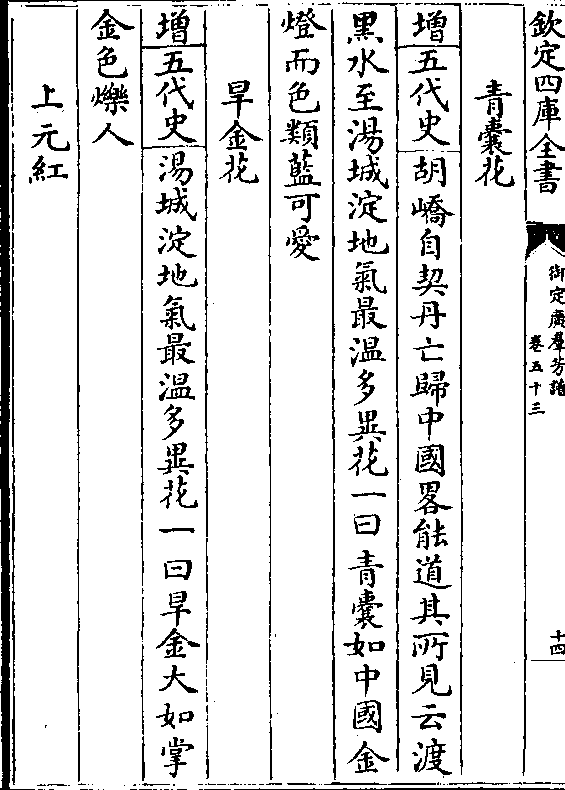 欽定四庫全書
御定廣羣芳譜
卷五十三
十四
青囊花
增五代史胡嶠自契丹亡歸中國畧能道其所見云渡
黒水至湯城淀地氣最溫多異花一曰青囊如中國金
燈而色類藍可愛
旱金花
增五代史湯城淀地氣最溫多異花一曰旱金大如掌
金色爍人
上元紅